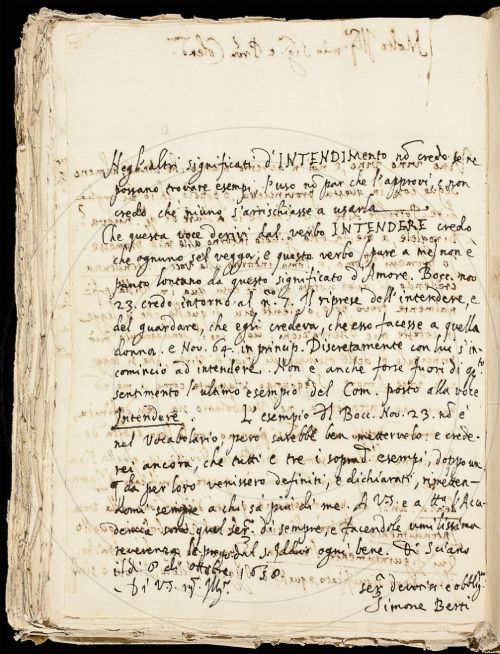 Negl'altri significati d'INTENDIMento nõ credo se ne
possano trovare esempi, l'uso nõ par che l'approvi, e non
credo che niuno s'arrischiasse a usarla
Che questa voce derivi dal verbo INTENDERE credo
che ognuno sel vegga; e questo verbo pare a me, non è
punto lontano da questo significato d'Amore. Bocc. nov
23. credo intorno al n. 7. Il riprese dell'intendere, e
del guardare, che egli credeva, che esso facesse a quella
donna. e Nov. 64. in princip. Discretamente con lui s'in
comincio ad intendere. Non è anche forse fuori di qto
sentimento l'ultimo esempio del Com. posto alla voce
Intendere. L'esempio del Bocc. Nov. 23. nõ è
nel Vocabolario, però sarebbe ben mettervelo: e crede-
rei ancora, che tutti e tre i soprad. esempi, doppo un
da per loro venissero definiti, e dichiarati,
domi sempre a chi sa più di me. A V.S. e a tta l'Acca
demia sono quel ser. di sempre, e facendole umilissima
reverenza le prego dal S. Iddio ogni bene. Di Sciano
il dì 8 di ottobre 1658
Di V.S. Ill.
ser. devotiss. e obblig.
Simone Berti